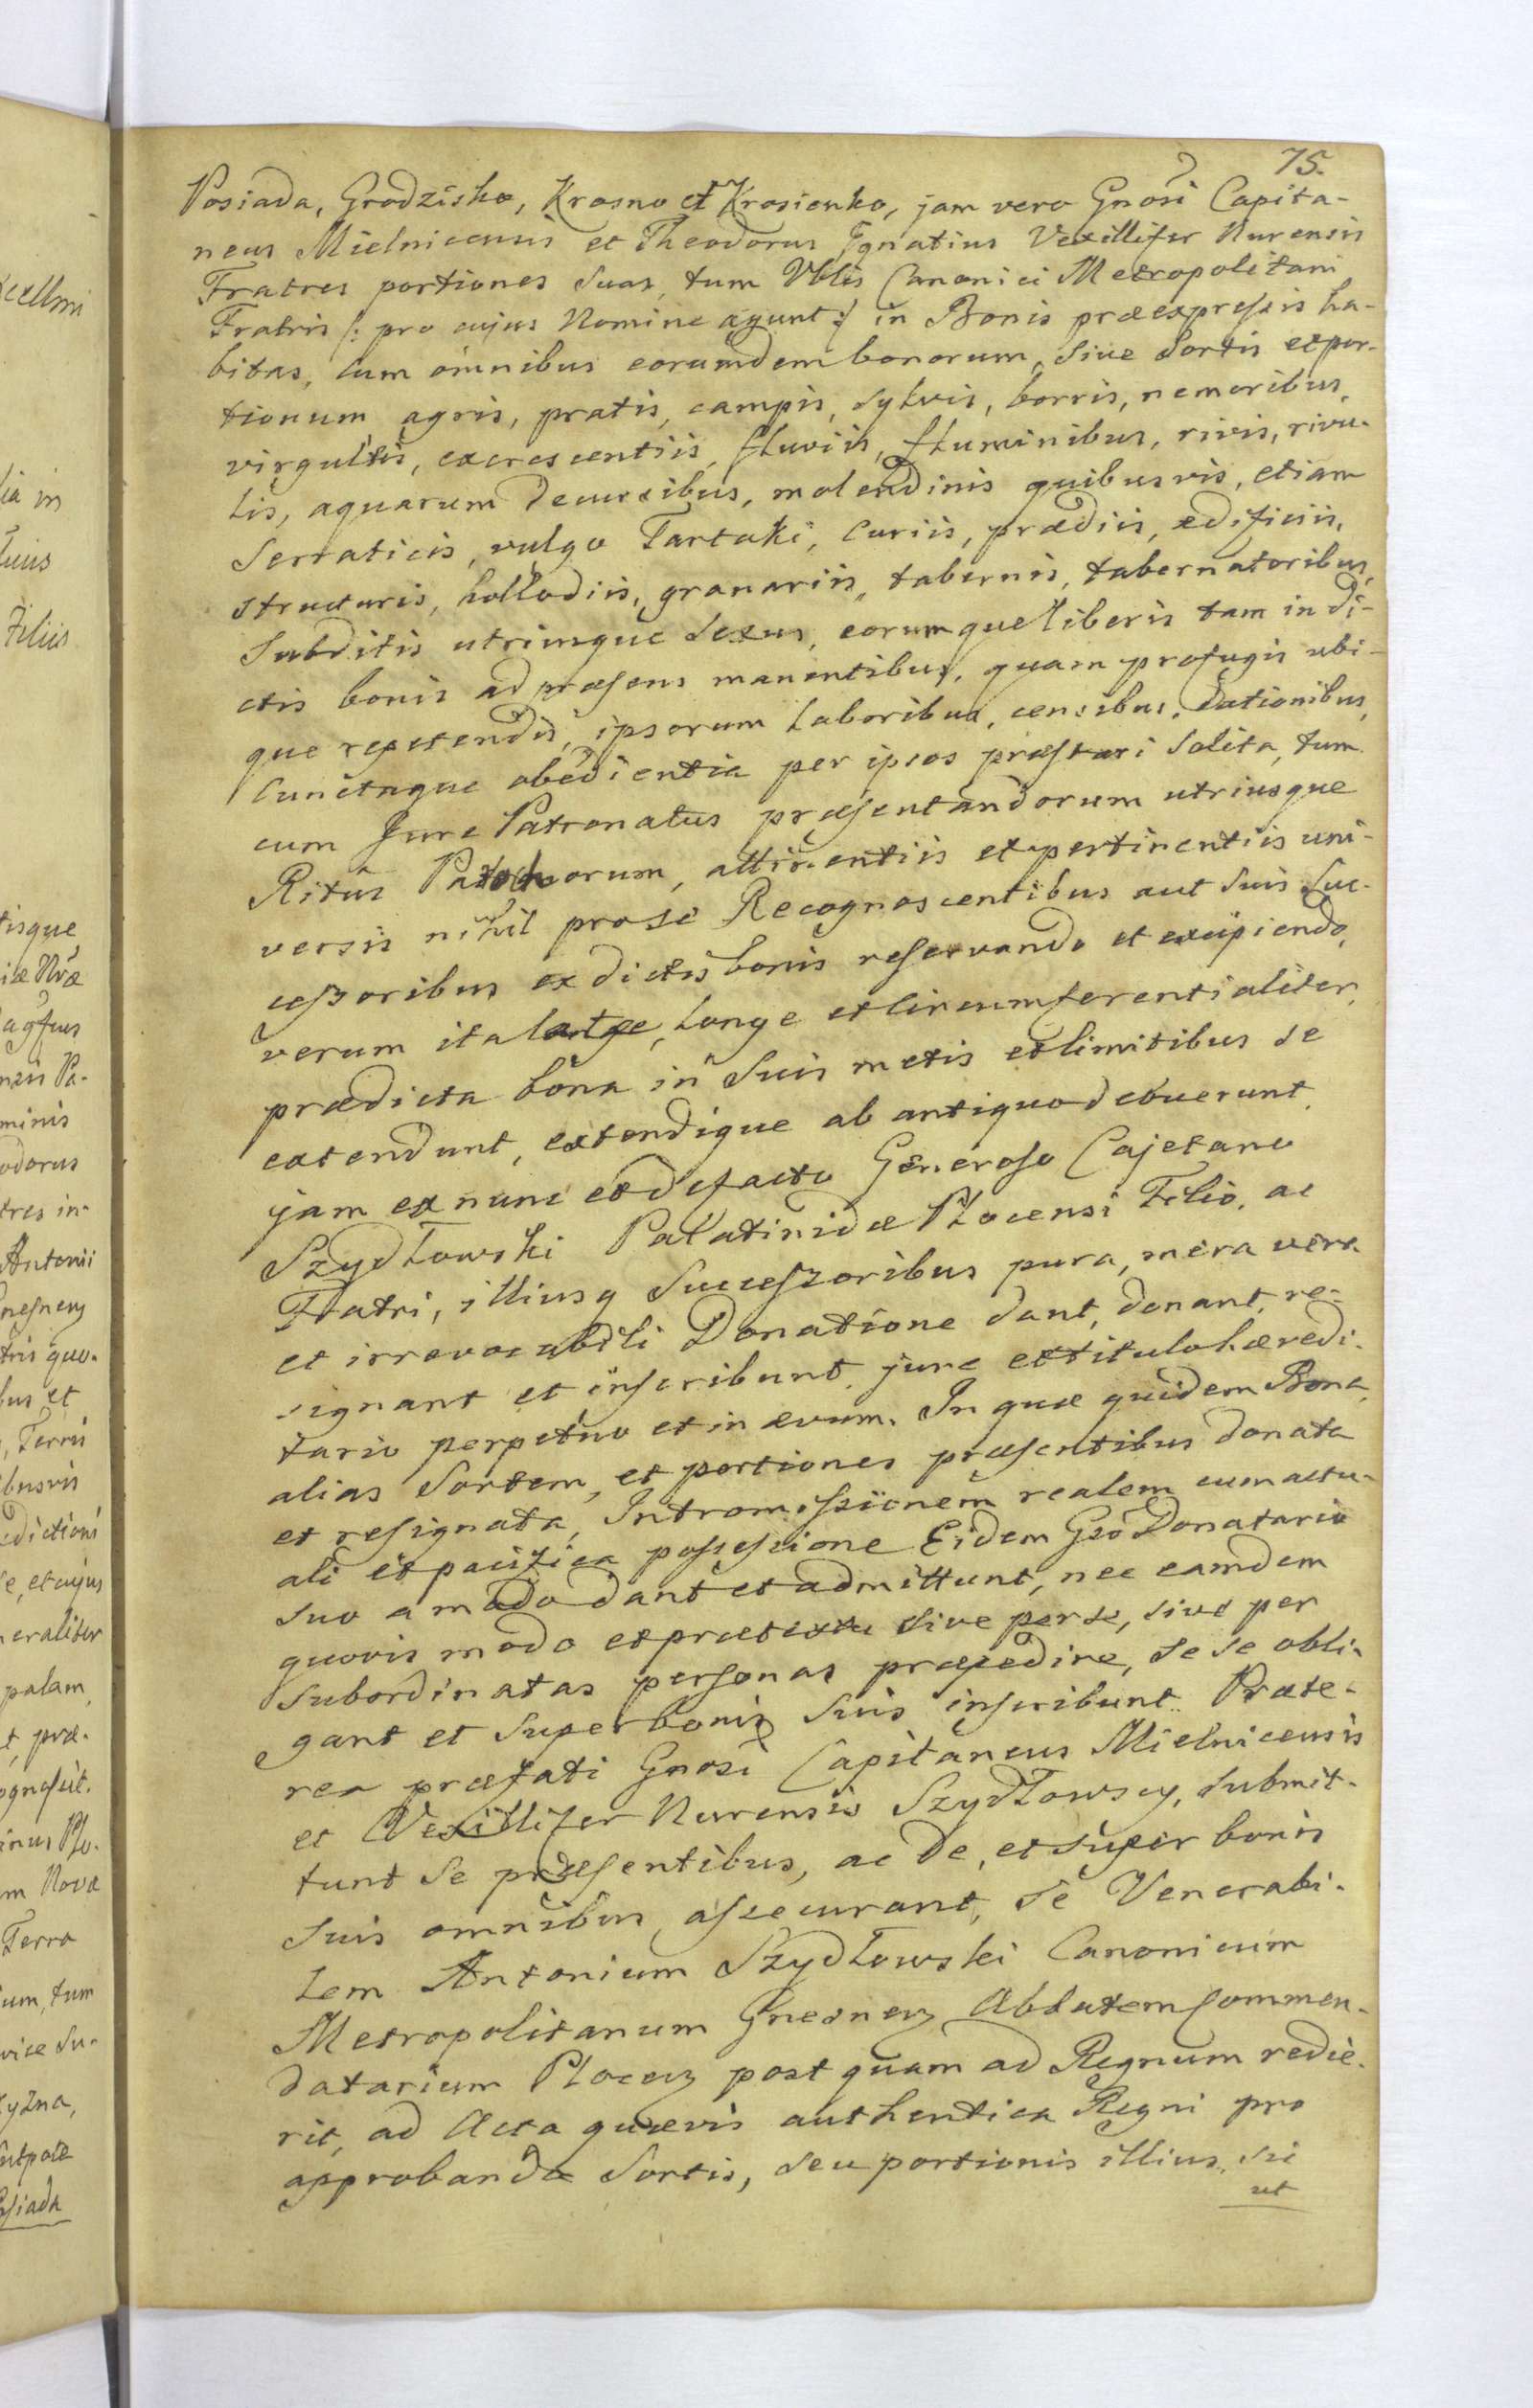 75.
Posiada, Grodzisko, Krosno et Krosienko, jam vero Gnosi Capita-
neus Mielnicensis et Theodorus Ignatius Vexillifer Nurensis
Fratres portiones suas, tum Vblis Canonici Metropolitani
Fratris /: pro cujus Nomine agunt :/ in Bonis præexpressis ha-
bitas, cum omnibus eorumdem bonorum, sive Sortis et por-
tionum agris, pratis, campis, sylvis, borris, nemoribus,
virgultis, excrescentiis, fluviis, fluminibus, rivis, rivu-
lis, aquarum decursibus, molendinis quibusvis, etiam
Serraticis, vulgo Tartaki, Curiis, prædiis, ædificiis,
structuris, hollodiis, granariis, tabernis, tabernatoribus,
Subditis utriusque Sexus, eorumque liberis tam in di-
ctis bonis ad præsens manentibus, quam profugis ubi-
que repetendis, ipsorum laboribus, censibus, dationibus,
Cunctaque obedientia per ipsos præstari Solita, tum
cum Jure Patronatus præsentandorum utriusque
Ritûs Parochorum, attinentiis et pertinentiis uni-
versis nihil pro se Recognoscentibus aut Suis Suc-
cessoribus ex dictis bonis reservando et excipiendo,
verum ita late, longe et circumferentialiter,
prædicta bona in Suis metis et limitibus se
extendunt, extendique ab antiquo debuerunt,
jam ex nunc et de facto Generoso Cajetano
Szydłowski Palatinidæ Plocensi Filio, ac
Fratri, illiusq Successoribus pura, mera vera
et irrevocabili Donatione dant, donant, re-
signant et inscribunt, jure et titulo hæredi-
tario perpetuo et in ævum. In quæ quidem Bona,
alias Sortem, et portiones præsentibus donata
et resignata, Intromissionem realem cum actu-
ali et pacifica possessione Eidem Gso Donatario
suo a modo dant et admittunt, nec eamdem
quovis modo et prætextu sive per se, sive per
subordinatas personas præpedire, se se obli-
gant et super bonis Suis inscribunt. Præte-
rea præfati Gnosi Capitaneus Mielnicensis
et Vexillifer Nurensis Szydłowscy, submit-
tunt Se præsentibus, ac de, et super bonis
Suis omnibus assecurant, Se Venerabi-
lem Antonium Szydłowski Canonicum
Metropolitanum Gnesnen Abbatem Commen-
datarium Plocen postquam ad Regnum redie-
rit, ad Acta quævis authentica Regni pro
approbanda Sortis, seu portionis illius, sic
ut